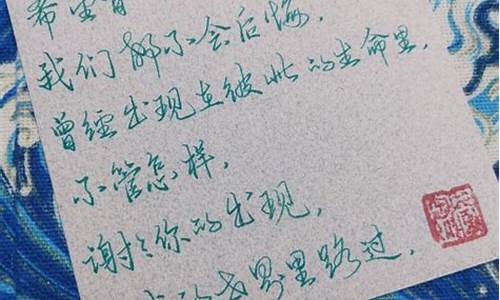 希望
我们都不会后悔，
曾经出现在彼此的生命里，
不管怎样，
谢谢你的出现，
世界里路过，